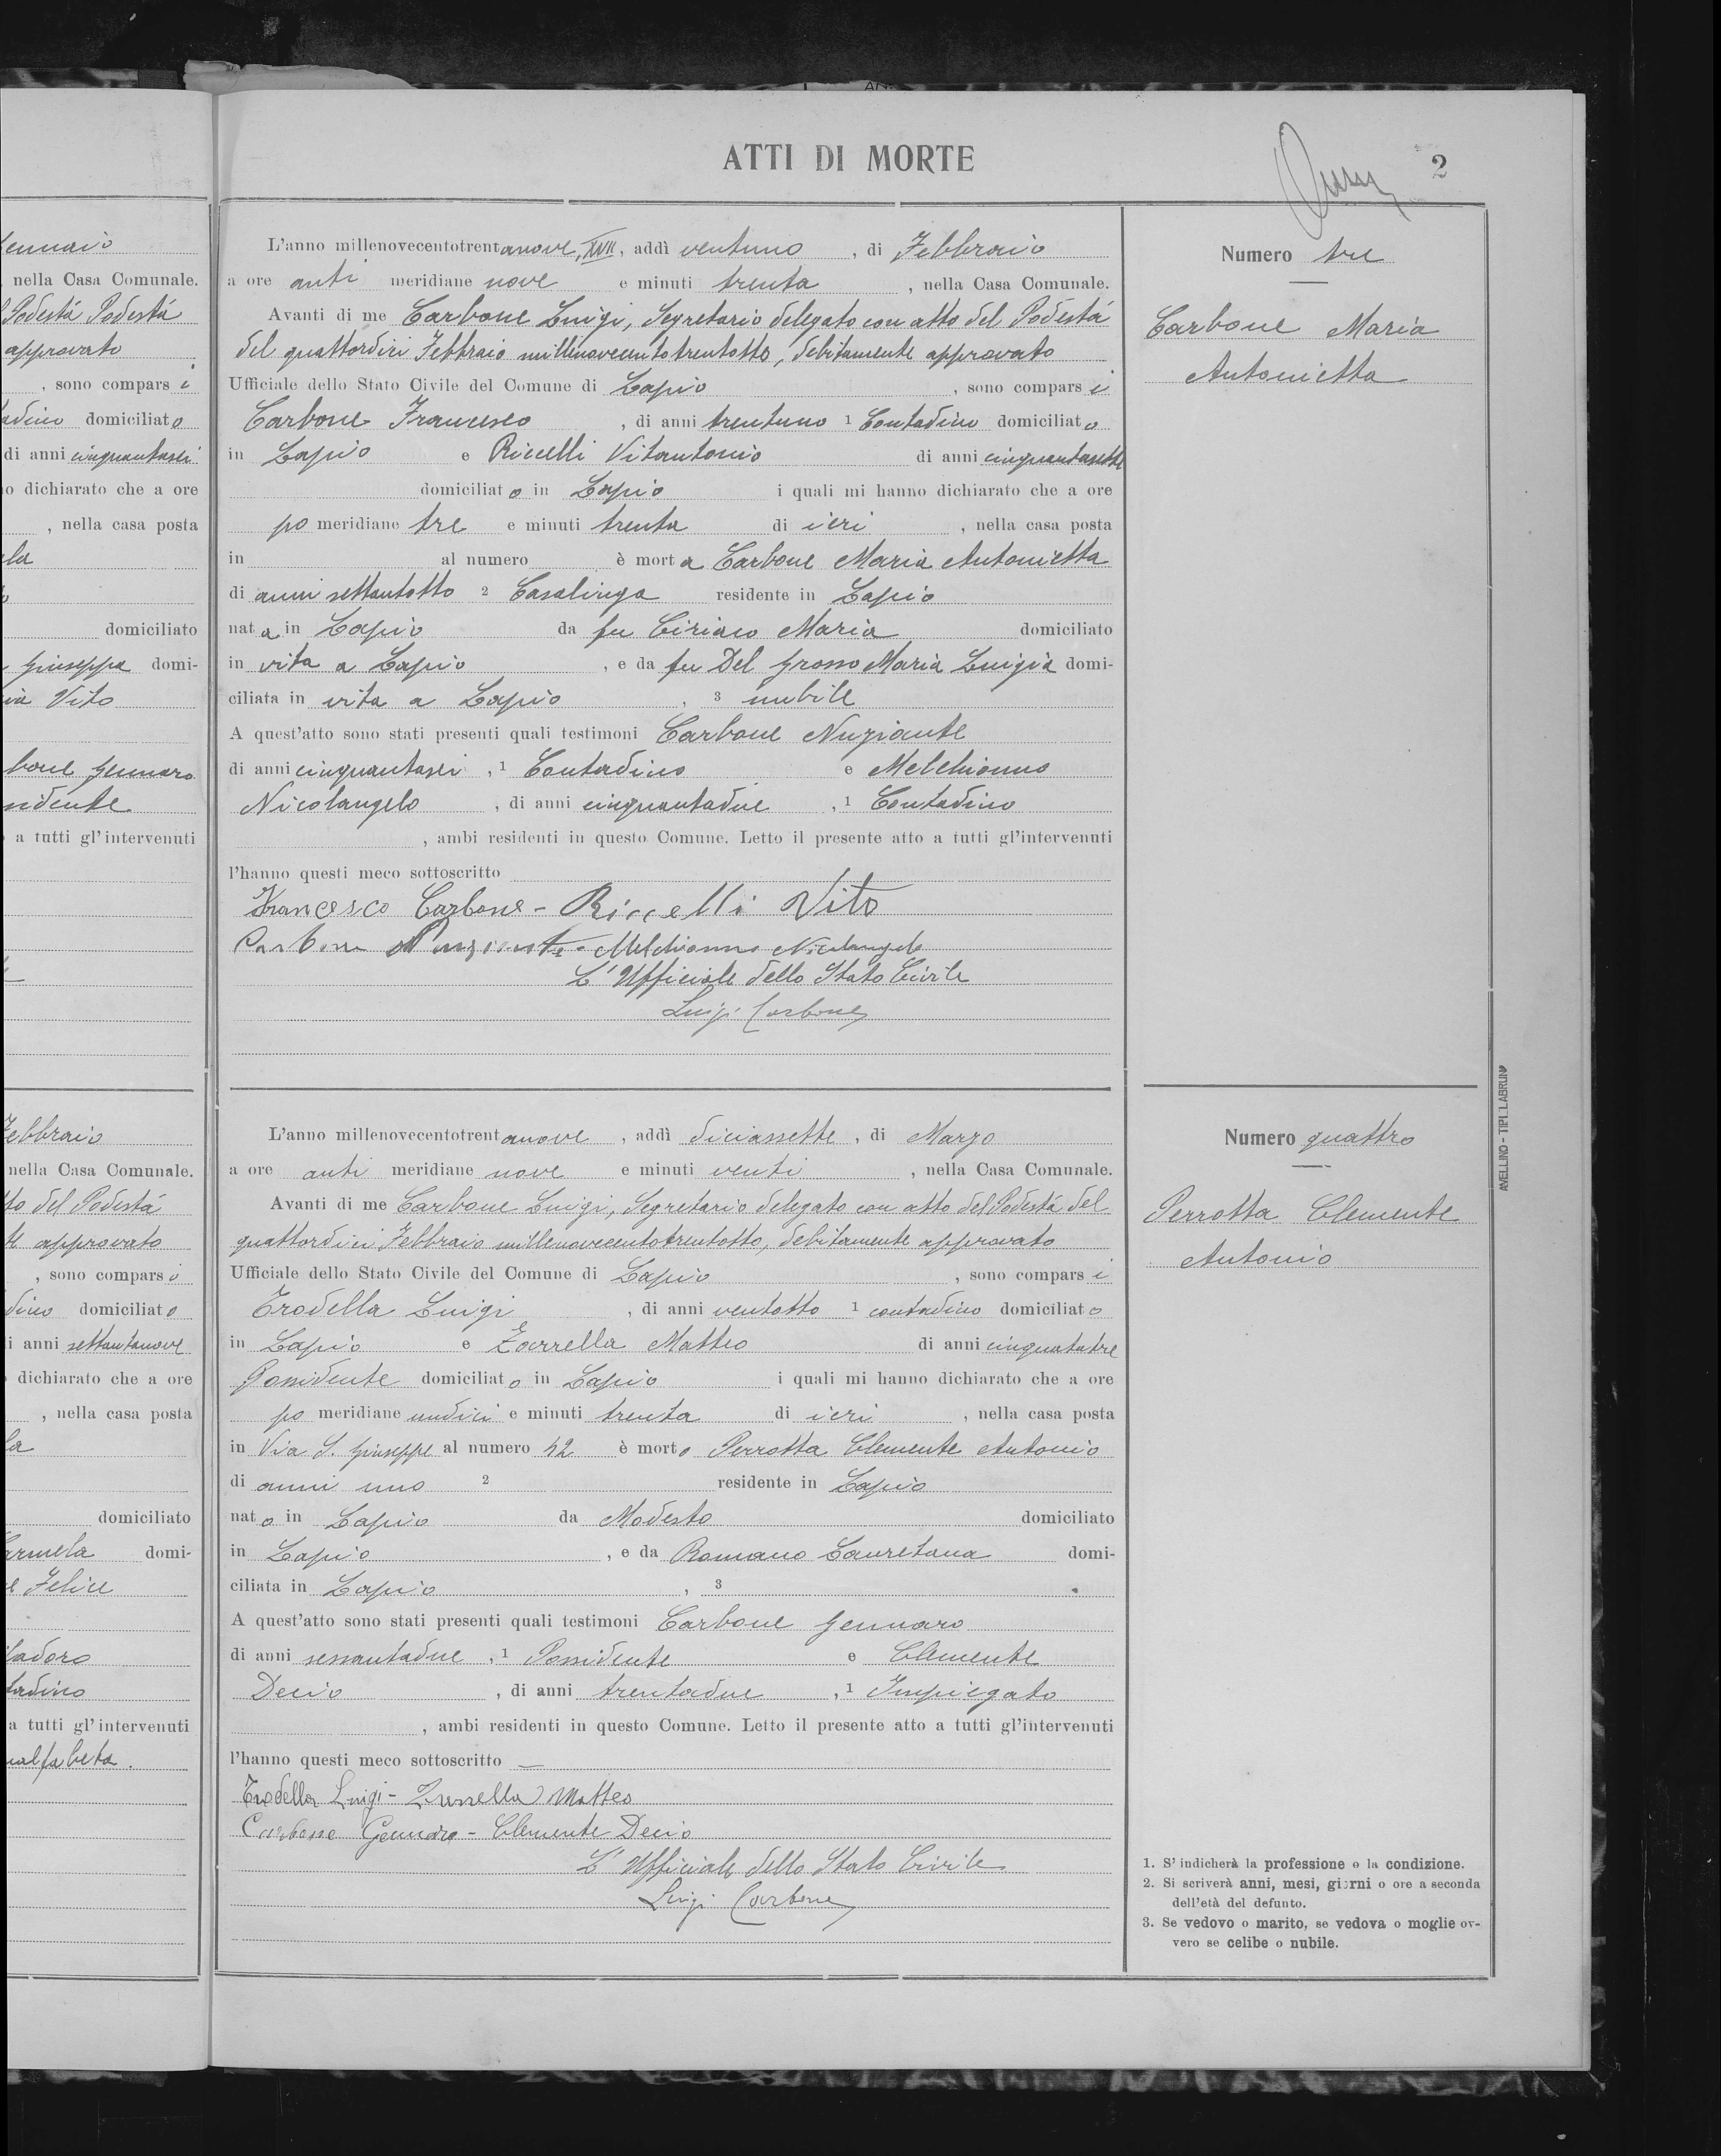 ATTI DI MORTE
2
ennaio
nella Casa Comunale.
Podestà Podestà
approvato
, sono compars i
adino domiciliato
di anni cinquantasei
o dichiarato che a ore
, nella casa posta
la
domiciliato
Giuseppa domi-
ia Vito
bone Gennaro
sidente
a tutti gl'intervenuti
Febbraio
nella Casa Comunale.
to del Podestà
te approvato
, sono compars i
dino domiciliato
i anni settantanove
dichiarato che a ore
, nella casa posta
la
domiciliato
armela domi-
e Felice
tadino
a tutti gl'intervenuti
nalfabeta.
L'anno millenovecentotrentanove, XVII, addì ventuno , di Febbraio
a ore anti meridiane nove e minuti trenta , nella Casa Comunale.
Avanti di me Carbone Luigi, Segretario delegato con atto del Podestà
del quattordici Febbraio millenovecentotrentotto, debitamente approvato
Ufficiale dello Stato Civile del Comune di Lapio , sono compars i
Carbone Francesco , di anni trentuno 1 Contadino domiciliato
in Lapio e Riccelli Vitantonio di anni cinquantasette
domiciliato in Lapio i quali mi hanno dichiarato che a ore
po meridiane tre e minuti trenta di ieri , nella casa posta
in al numero è morta Carbone Maria Antonietta
di anni settantotto 2 Casalinga residente in Lapio
nata in Lapio da fu Ciriaco Maria domiciliato
in vita a Lapio , e da fu Del Grosso Maria Luigia domi-
ciliata in vita a Lapio , 3 nubile
A quest'atto sono stati presenti quali testimoni Carbone Nunziante
di anni cinquantasei , 1 Contadino e Melchionno
Nicolangelo , di anni cinquantadue , 1 Contadino
, ambi residenti in questo Comune. Letto il presente atto a tutti gl'intervenuti
l'hanno questi meco sottoscritto
Francesco Carbone - Riccelli Vito
Carbone Nunziante - Melchionno Nicolangelo
L'Ufficiale dello Stato Civile
Luigi Carbone
Numero tre
Carbone Maria
Antonietta
L'anno millenovecentotrentanove , addì diciassette , di Marzo
a ore anti meridiane nove e minuti venti , nella Casa Comunale.
Avanti di me Carbone Luigi, Segretario delegato con atto del Podestà del
quattordici Febbraio millenovecentotrentotto, debitamente approvato
Ufficiale dello Stato Civile del Comune di Lapio , sono compars i
Trodella Luigi , di anni ventotto 1 contadino domiciliato
in Lapio e Zarrella Matteo di anni cinquantatre
Possidente domiciliato in Lapio i quali mi hanno dichiarato che a ore
po meridiane undici e minuti trenta di ieri , nella casa posta
in Via S. Giuseppe al numero 42 è morto Perrotta Clemente Antonio
di anni uno 2 residente in Lapio
nato in Lapio da Modesto domiciliato
in Lapio , e da Romano Lauretana domi-
ciliata in Lapio , 3
A quest'atto sono stati presenti quali testimoni Carbone Gennaro
di anni sessantadue , 1 Possidente e Clemente
Decio , di anni trentadue , 1 Impiegato
, ambi residenti in questo Comune. Letto il presente atto a tutti gl'intervenuti
l'hanno questi meco sottoscritto —
Trodella Luigi - Zarrella Matteo
Carbone Gennaro - Clemente Decio
L'Ufficiale dello Stato Civile
Luigi Carbone
Numero quattro
Perrotta Clemente
Antonio
1. S'indicherà la professione o la condizione.
2. Si scriverà anni, mesi, giorni o ore a seconda
dell'età del defunto.
3. Se vedovo o marito, se vedova o moglie ov-
vero se celibe o nubile.
AVELLINO - TIP. LABRUNA